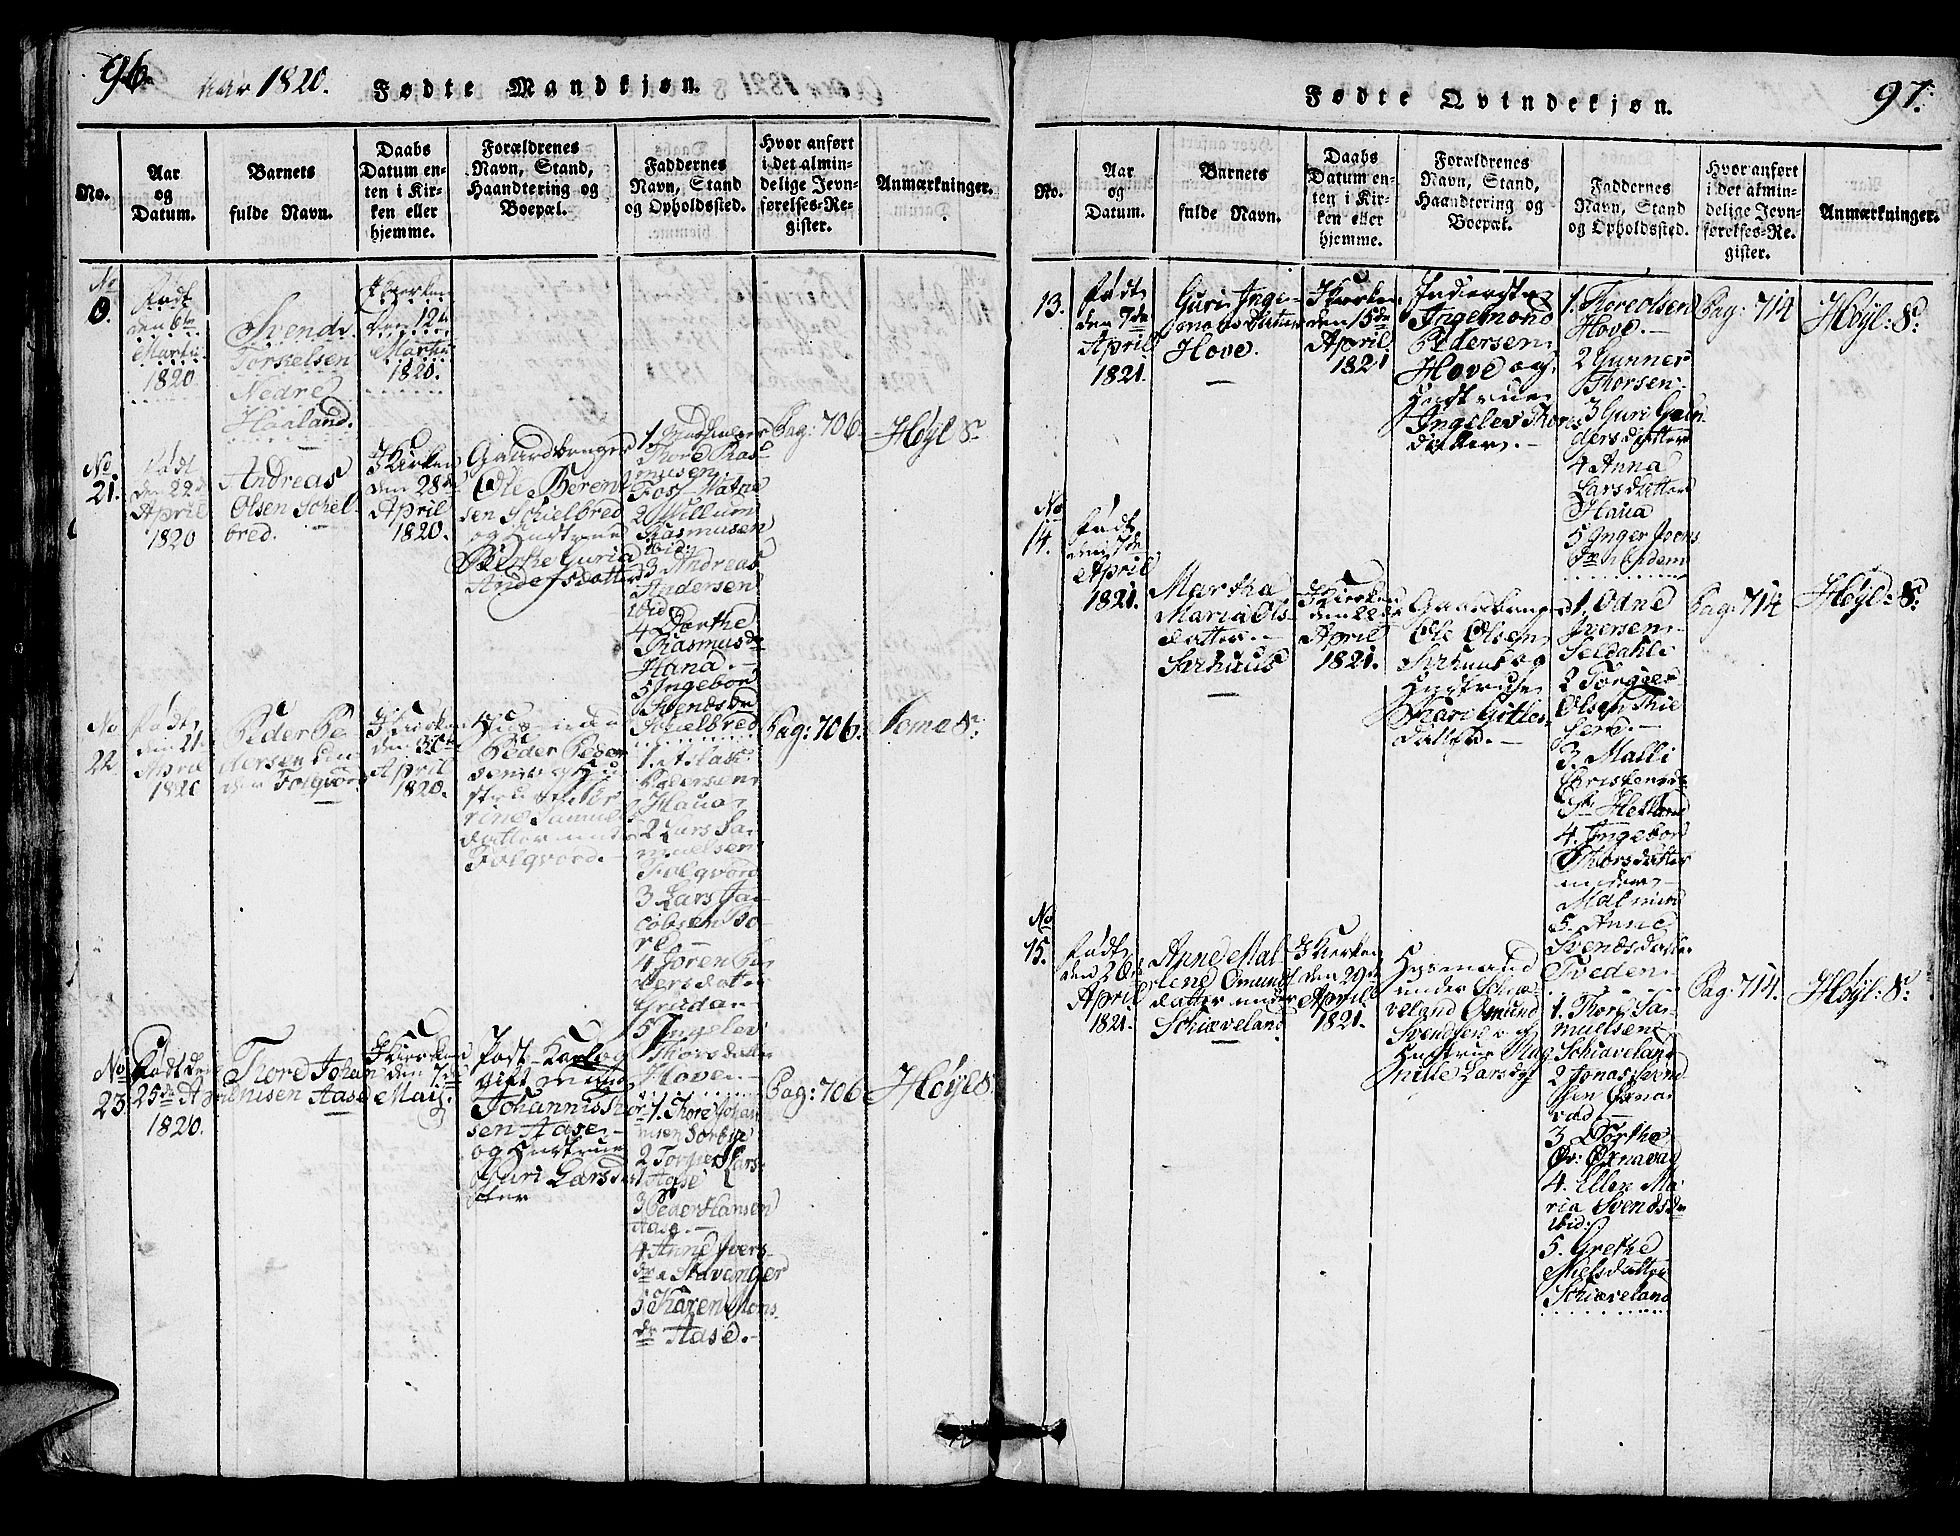 96
Aar 1820. Fødte Mandkjøn.
No.
Aar
og
Datum.
Barnets
fulde Navn.
Daabs
Datum en-
ten i Kir-
ken eller
hjemme.
Forældrenes
Navn, Stand,
Haandtering og
Boepæl.
Faddernes
Navn, Stand
og Opholdssted.
Hvor anført
i det almin-
delige Jevn-
førelses-Re-
gister.
Anmærkninger.
No
Født
den 6te
Martii
1820
Svend
Torkelsen
Nedre
Haaland.
I Kirken
den 12te
Martii
1820.
No
21.
Født
den 22de
April
1820
Andreas
Olsen Schiel-
bred.
I Kirken
den 28de
April
1820.
Gaardbruger
Ole Berent
sen Schielbred
og Hustrue
Berthe Guria
Andersdatter
1.
Thore Ras
musen
Foss Vatne
2 Willum
Rasmusen
ibid:
3 Andreas
Andersen
ibid
4 Dorthe
Rasmusdr
Hana.
5 Ingebor
Svendsdr
Schielbred
Pag: 706.
Høyl S:
No
22
Født
den 21
April
1820
Peder Pe
dersen
Folgvord
I Kirken
den 30te
April
1820.
Peder Peder
sen og Hu
strue
rine Samuels
datter
Folgvord.
1.
Pedersen
Haua
2 Lars Sa-
muelsen
Folgvord
3 Lars Ja-
cobsen Bo-
re
4 Joren
versdatter
Gruda
5 Ingelev
Thorsdatter
Hove.
Pag: 706.
Soma S:
No
23
Født den
25de April
1820.
Thore Johan
nisen Aase
I Kirken
den 7de
Maij.
Post-Karl og
Gift Mand
Johannis Thor
sen Aase
og Hustrue
Guri Larsdat
ter
1. Thore Johan
nisen Sorbye
2 Torger Lars
Aase
3 Peder Hansen
Aase.
4 Anne Ivers-
dr a Stavanger
5 Karen Mons
dr Aase.
Pag: 706
Høyl S:
Fødte Qvindekjøn.
97.
No.
Aar
og
Datum.
Barnets
fulde Navn.
Daabs
Datum en-
ten i Kir-
ken eller
hjemme.
Forældrenes
Navn, Stand,
Haandtering og
Boepæl.
Faddernes
Navn, Stand
og Opholdssted.
Hvor anført
i det almin-
delige Jevn-
førelses-Re-
gister.
Anmærkninger.
13.
Født
den 7de
April
1821.
Guri Inge-
monds Datter
Hove.
I Kirken
den 15de
April
1821
Inderste
Ingemond
Pedersen
Hove og
Hustrue
Ingelev Thors
datter.
1. Thore Olsen
Hove.
2 Gunner
Thorsen
3 Guri Gun
dersdatter
4 Anna
Larsdatter
Haua
5 Inger Joons
Dr
Pag: 714
Høyl: S:
No
14.
Født
den 7de
April
1821.
Martha
Maria Ols
datter
Sirhuus
I Kirken
den 22de
April
1821.
Gaardbruger
Ole Olsen
Sirhuus og
Hustrue
Kari Gitles
datter.
1. Odne
Iversen
Seldahl
2 Torger
Olsen Thie
3. Malli
Christensdr
Hetland
4. Ingebor
Thorsdatter
Malmin
5. Anne
Svendsdatter
Tveden
Pag: 714
Høyl: S:
No
15.
Født
den 26de
April
1821.
Anne Mal
lene Osmund
datter under
Schiæveland
I Kirken
den 29de
April
1821.
Huusmand
under Schiæ
veland Osmund
Svendsen og
Hustrue Rag
nille Larsdr
1. Thore Sa-
muelsen
Schiæveland
2 Jonas Svend
sen Øxna
vad.
3 Dorthe
Øxnavad
4. Ellen Ma
ria Svendsdr
ibid:
5. Grethe
Nielsdatter
Schiæveland
Pag: 714.
Høyl: S: